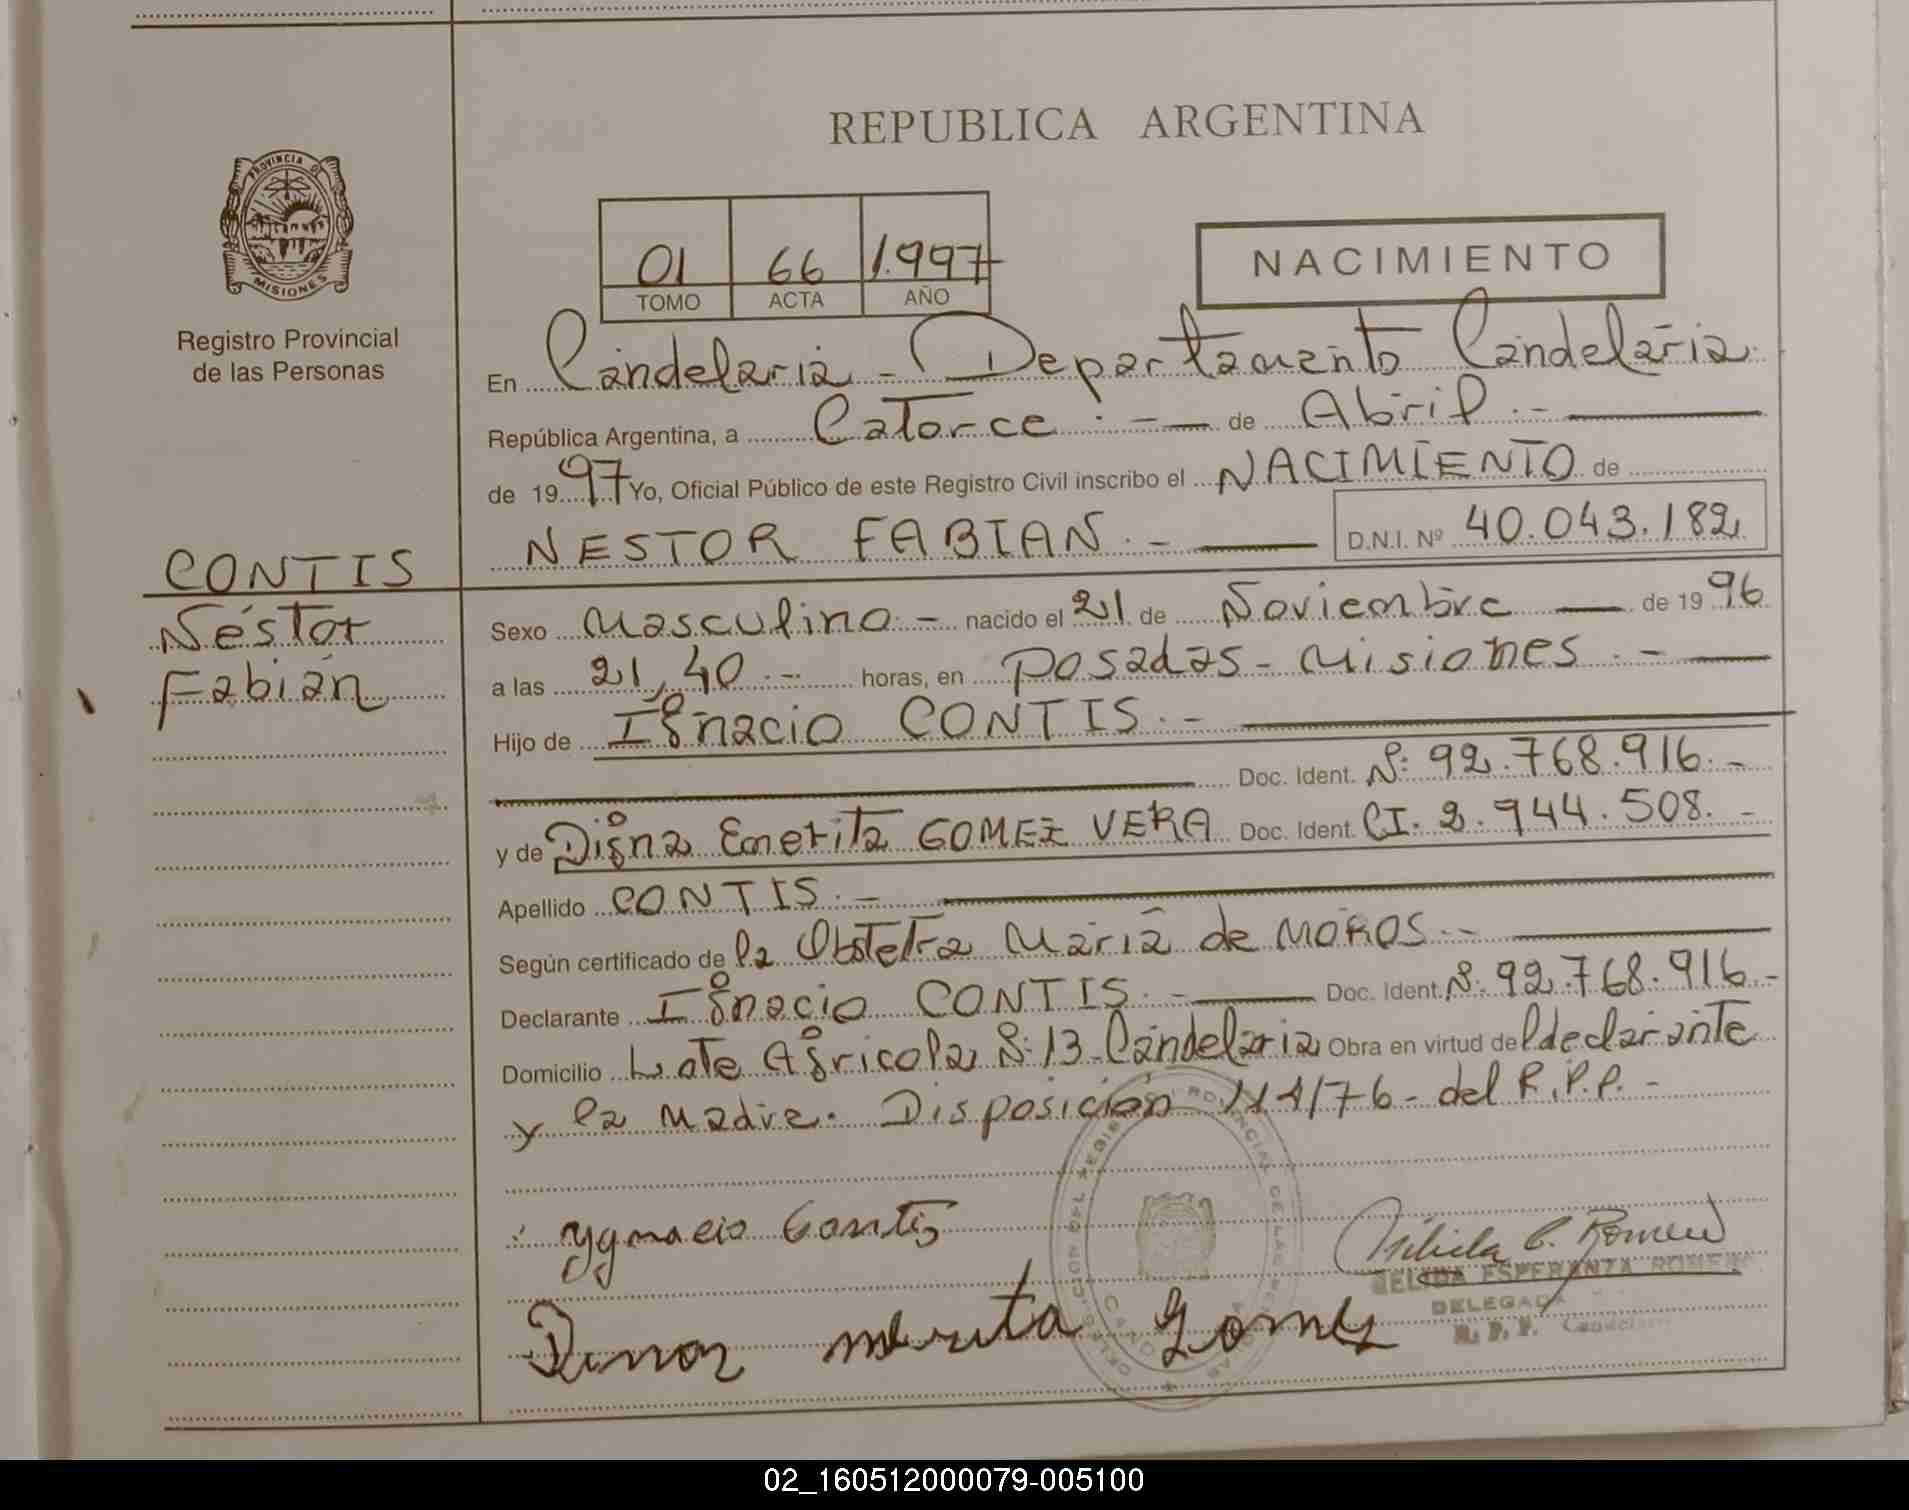 REPUBLICA ARGENTINA
PROVINCIA DE
MISIONES
Registro Provincial
de las Personas
01 66 1.997
TOMO ACTA AÑO
NACIMIENTO
En Candelaria - Departamento Candelaria
República Argentina, a Catorce.- de Abril.-
de 1997 Yo, Oficial Público de este Registro Civil inscribo el NACIMIENTO de
NESTOR FABIAN.- D.N.I. Nº 40.043.182
CONTIS
Néstor
Fabián
Sexo Masculino.- nacido el 21 de Noviembre de 1996
a las 21,40.- horas, en Posadas - Misiones.-
Hijo de Ignacio CONTIS.-
Doc. Ident. Nº: 92.768.916.-
y de Digna Emerita GOMEZ VERA Doc. Ident. CI. 2.944.508.-
Apellido CONTIS.-
Según certificado de la Obstetra María de MOROS.-
Declarante Ignacio CONTIS.- Doc. Ident. Nº: 92.768.916.-
Domicilio Lote Agricola Nº: 13 - Candelaria Obra en virtud del declarante
y la Madre. Disposición 114/76 - del R.P.P.-
Ygnacio Contis
merita Gomez
NELIDA ESPERANZA ROMERO
DELEGADA
R. P. P. Candelaria
02_160512000079-005100